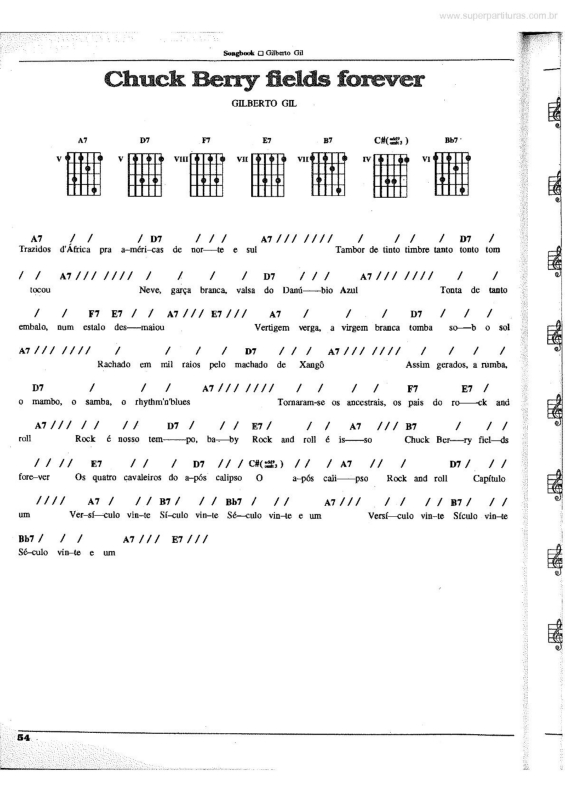 www.superpartituras.com.br
Songbook □ Gilberto Gil
Chuck Berry fields forever
GILBERTO GIL
A7 D7 F7 E7 B7 C#( ) Bb7
V V VIII VII VII IV VI
A7 / / / D7 / / / A7 / / / / / / / / / / / D7 /
Trazidos d'África pra a-méri-cas de nor—te e sul Tambor de tinto timbre tanto tonto tom
/ / A7 / / / / / / / / / / / D7 / / / A7 / / / / / / / / /
tocou Neve, garça branca, valsa do Danú—bio Azul Tonta de tanto
/ / F7 E7 / / A7 / / / E7 / / / A7 / / / D7 / /
embalo, num estalo des—maiou Vertigem verga, a virgem branca tomba so—b o sol
A7 / / / / / / / / / / / D7 / / / A7 / / / / / / / / / / /
Rachado em mil raios pelo machado de Xangô Assim gerados, a rumba,
D7 / / / A7 / / / / / / / / / / / F7 E7 /
o mambo, o samba, o rhythm'n'blues Tornaram-se os ancestrais, os pais do ro—ck and
A7 / / / / / / / D7 / / / E7 / / / A7 / / / B7 / / /
roll Rock é nosso tem—po, ba—by Rock and roll é is—so Chuck Ber—ry fiel—ds
/ / / / E7 / / / D7 / / / C#( ) / / / A7 / / / D7 / / /
fore-ver Os quatro cavaleiros do a-pós calipso O a-pós cali—pso Rock and roll Capítulo
/ / / / A7 / / / B7 / / / Bb7 / / / A7 / / / / / / / B7 / / /
um Ver-sí—culo vin-te Sí-culo vin-te Sé—culo vin-te e um Versí—culo vin-te Sículo vin-te
Bb7 / / / A7 / / / E7 / / /
Sé-culo vin-te e um
54